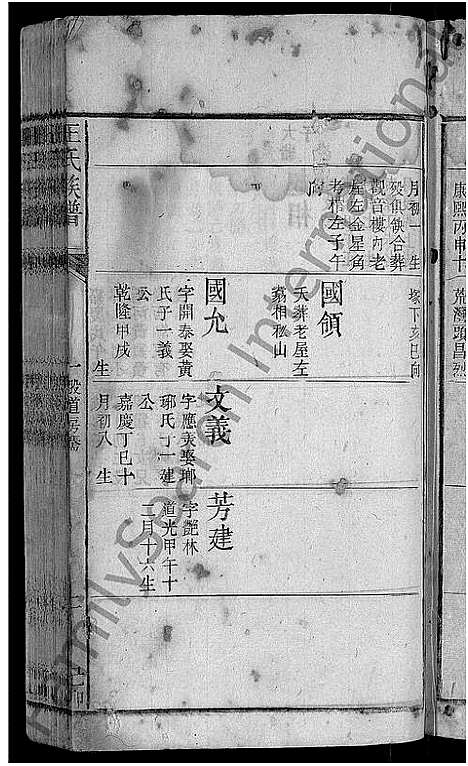 康熙丙申十
荒灣蹟昌烈
月初一生
歿俱缺合葬
觀音樓內老
屋左金星角
考相左子午
向
塚下亥巳向
國領
夭葬老屋左
蟻相私山
國允
字開泰娶黃
氏子一義
公
乾隆甲戌
生
文義
字應美娶瑯
琊氏丁一建
公
嘉慶丁巳十
月初八生
芳建
字艷林
道光甲午十
二月十六生
王氏族譜
FamilySearch International